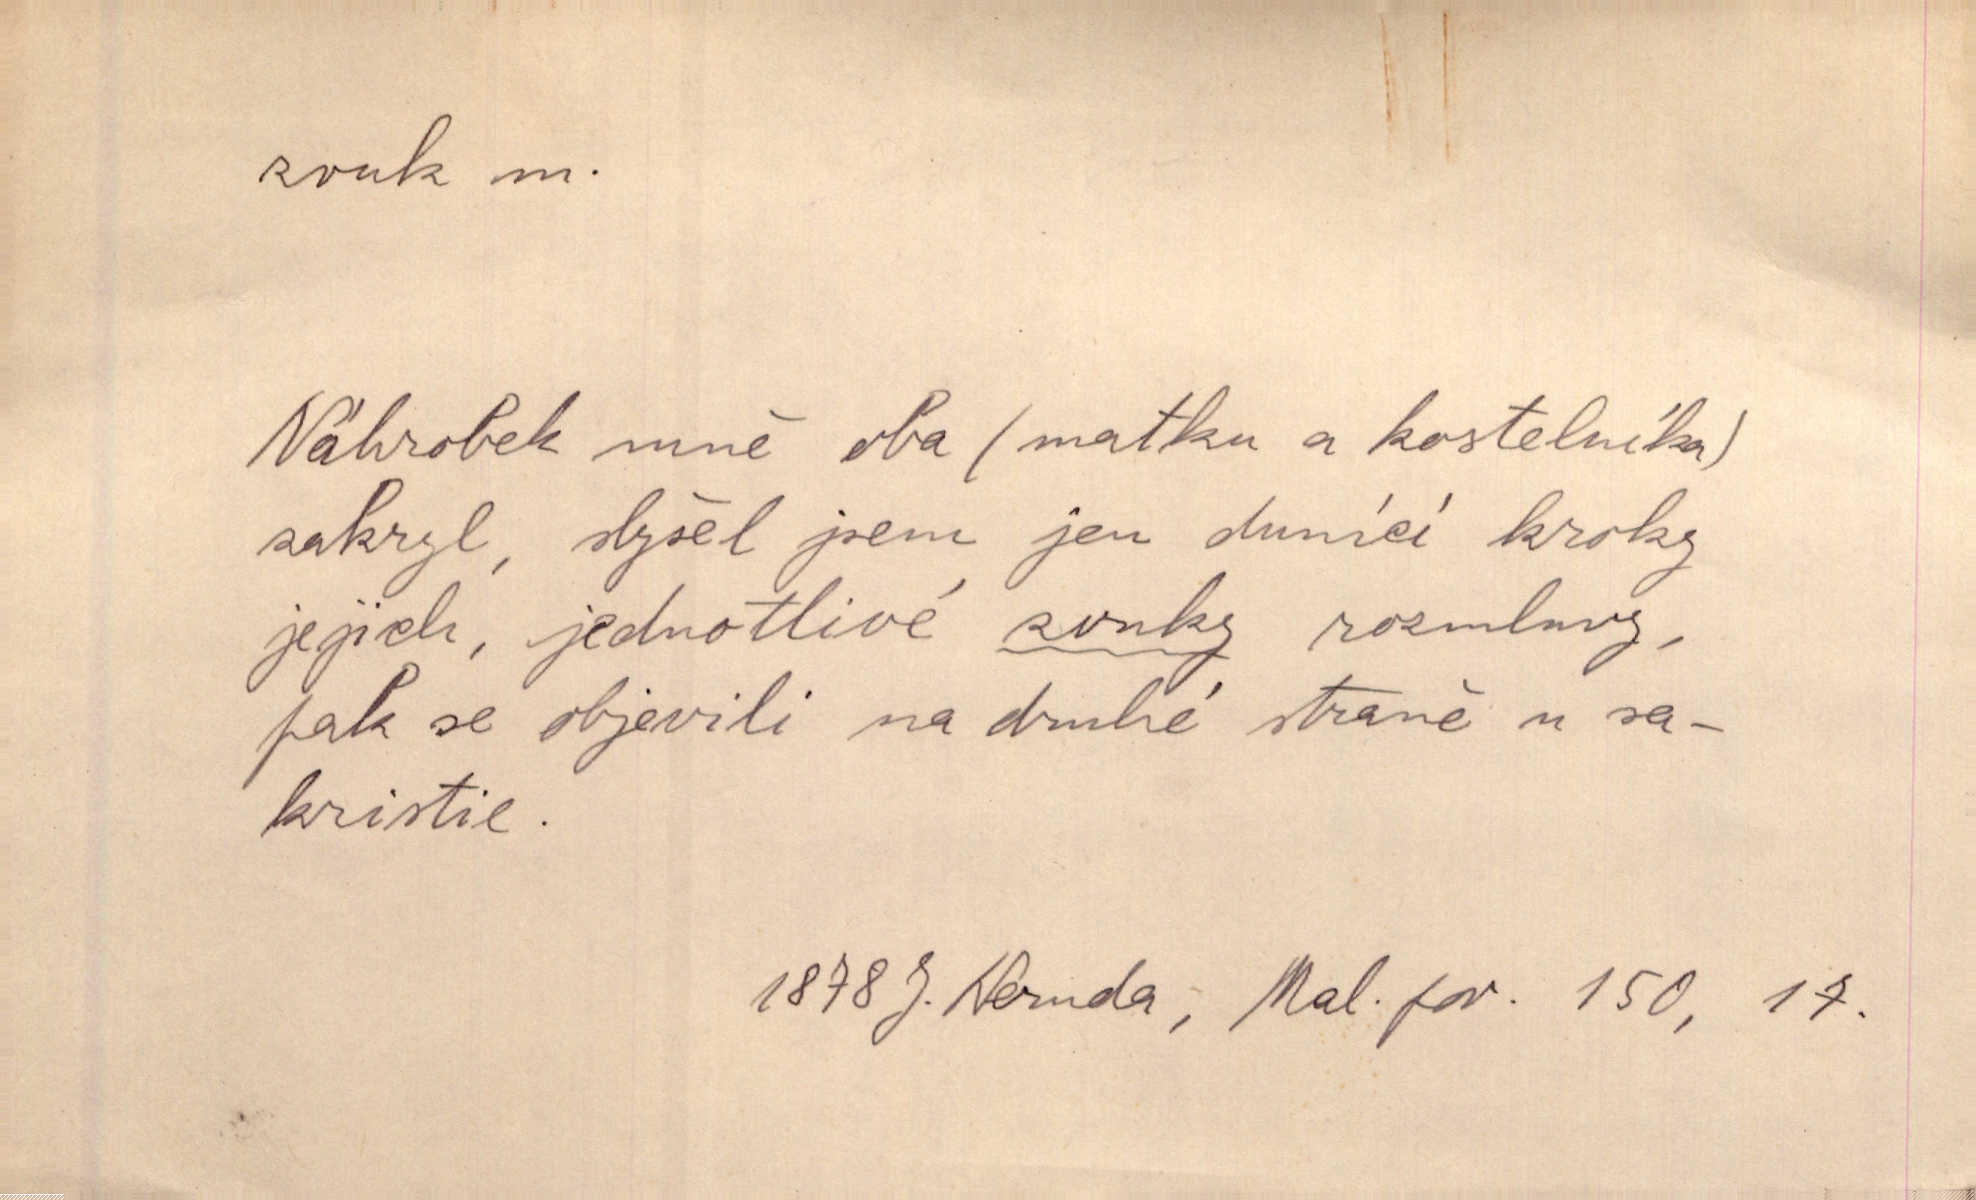 zvuk m.
Náhrobek mně oba (matku a kostelníka)
zakryl, slyšel jsem jen dunící kroky
jejich, jednotlivé zvuky rozmluvy,
pak se objevili na druhé straně u sa-
kristie.
1878 J. Neruda, Mal. pov. 150, 17.